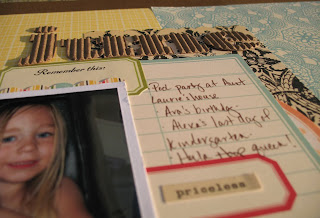 Remember this:
Pool party at Aunt
Laurie's house
Ava's birthday
Alexa's last day of
Kindergarten
"Hula Hoop Queen"!
priceless